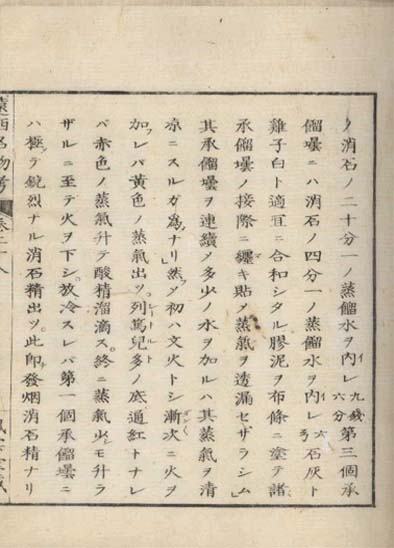 ノ消石ノ二十分一ノ蒸餾水ヲ内レイ九錢六分第三個承
餾壜ニハ消石ノ四分一ノ蒸餾水ヲ内レイ石灰ト
雞子白ト適宜ニ合和シタル膠泥ヲ布條ニ塗テ諸
承餾壜ノ接際ニ纏キ貼メ蒸氣ヲ透漏セザラシム」
其承餾壜ヲ連續メ多少ノ水ヲ加ルハ其蒸氣ヲ清
凉ニスルガ為ナリ」然メ初ハ文火トシ漸次ニ火ヲ
加フレバ黄色ノ蒸氣出ツ列篤兒多ノ底通紅トナレ
バ赤色ノ蒸氣升テ酸精溜滴ス。終ニ蒸氣少モ升ラ
ザルニ至テ火ヲ下シ。放冷スレバ第一個承餾壜ニ
ハ極テ鋭烈ナル消石精出ツ。此即發烟消石精ナリ
遠西名物考 巻三十八